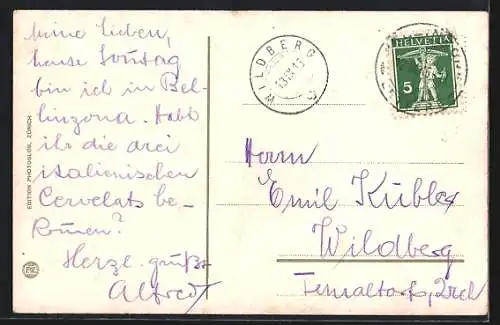 meine lieben,
heute Sonntag
bin ich in Bel-
linzona. Habt
ihr die drei
italienischen
Cervelats be-
kommen?
Herzl. grüsst
Alfred
EDITION PHOTOGLOB, ZÜRICH
WILDBERG
HELVETIA
5
Herrn
Emil Kübler
Wildberg
Zrch